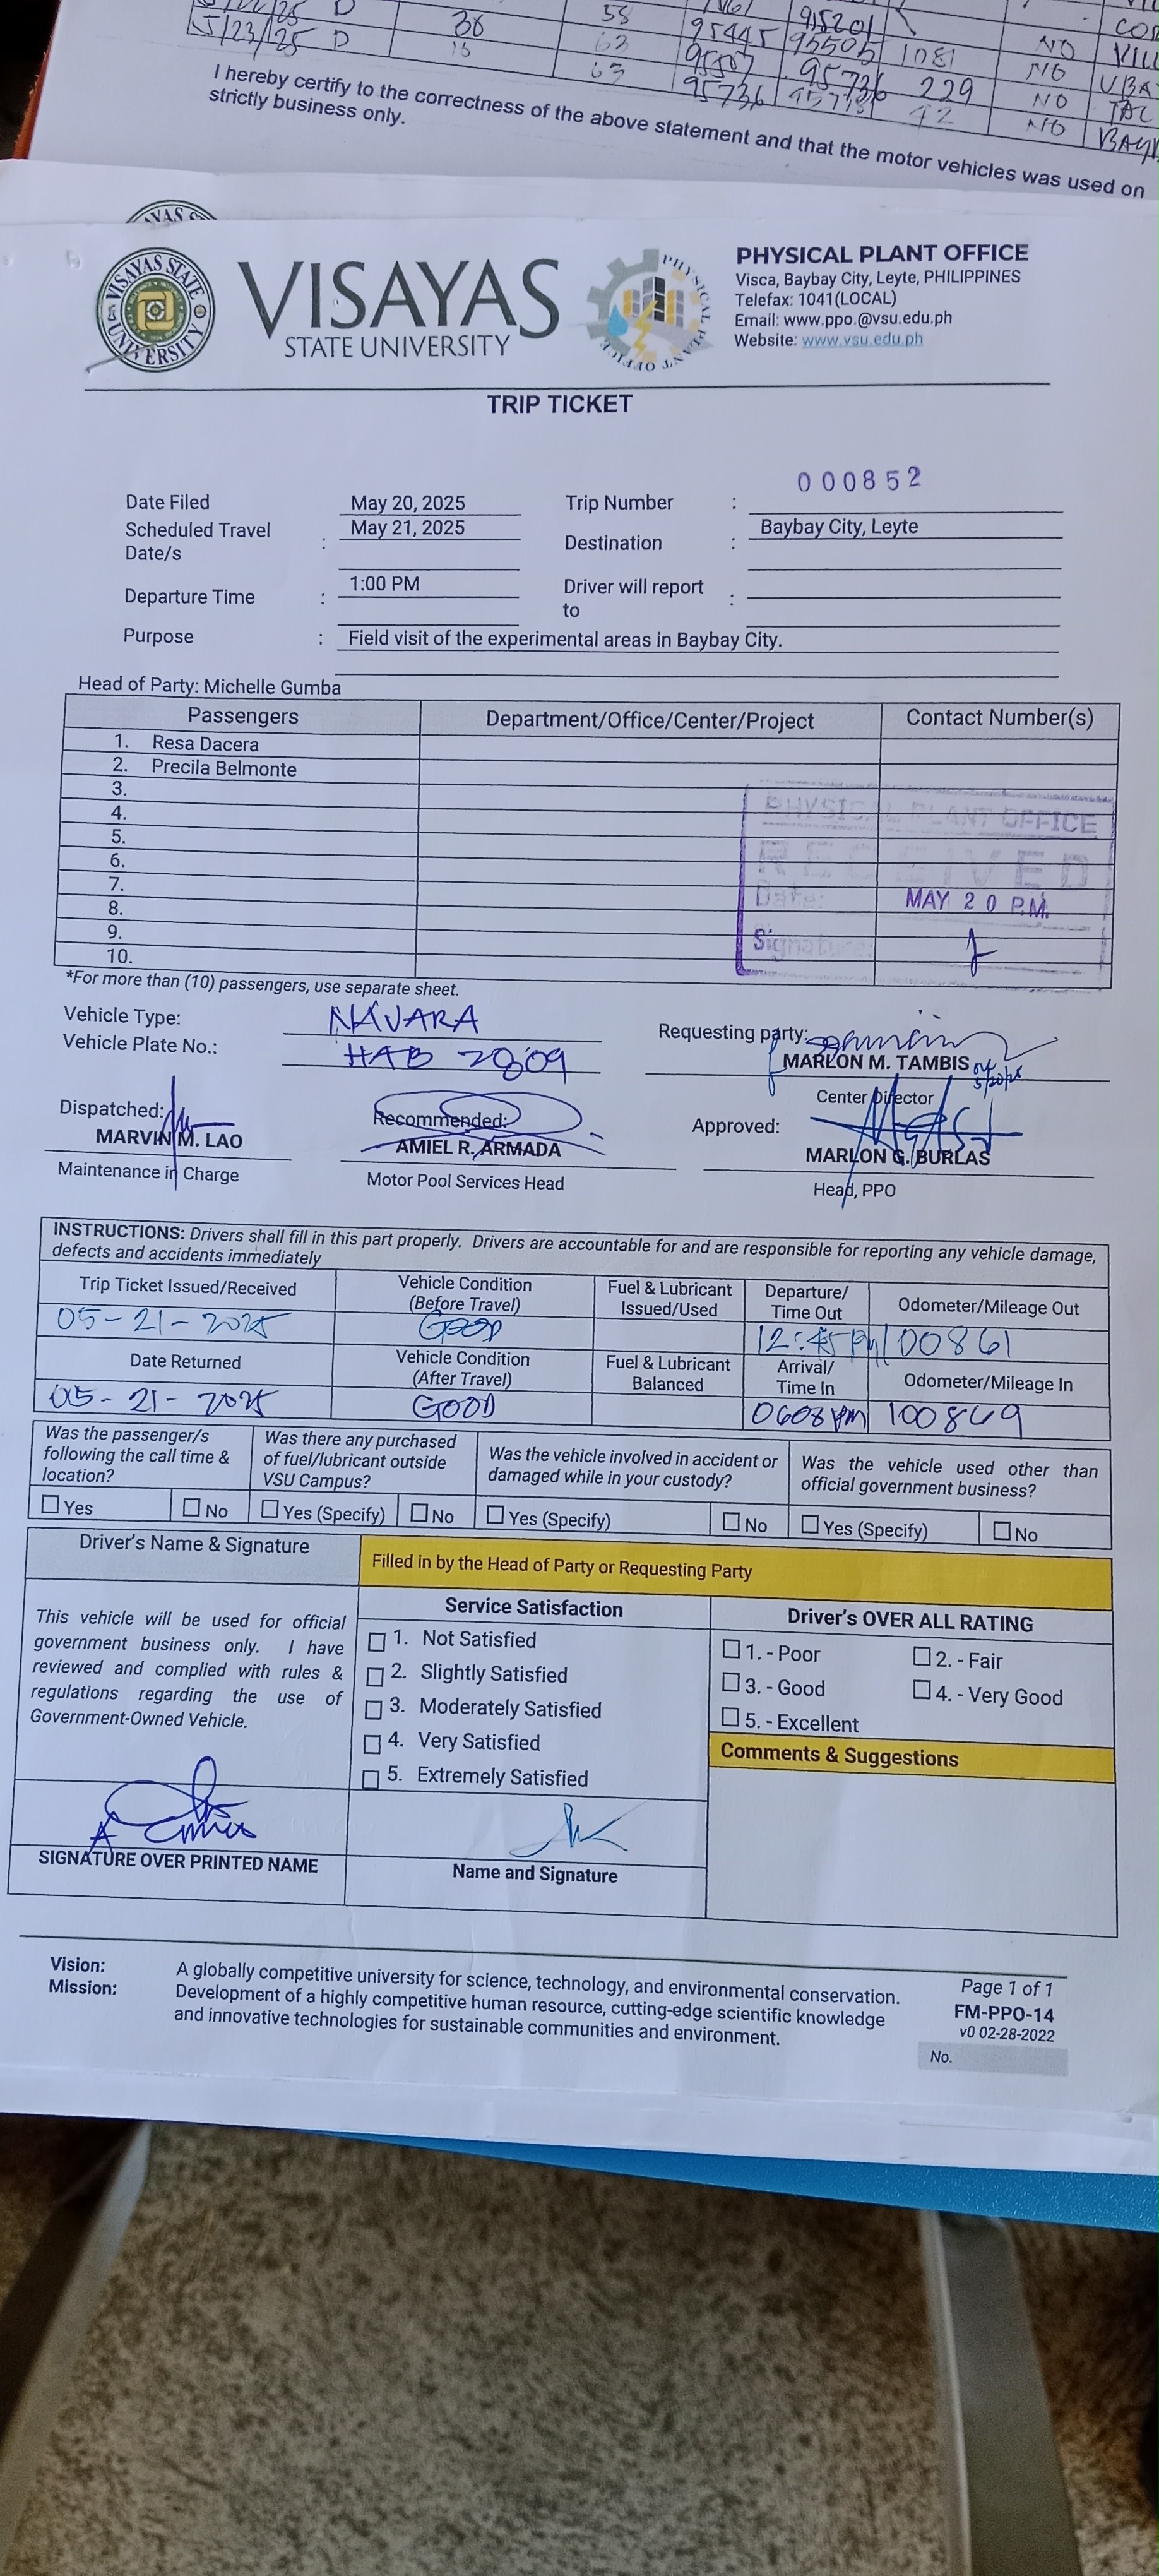 5/23/25 D
38 58 95445 95201
15 63 9550 95505 1081 NO VILL
63 95736 95736 229 NO UBA
42 NO BAY
I hereby certify to the correctness of the above statement and that the motor vehicles was used on
strictly business only.
VISAYAS STATE UNIVERSITY
VISAYAS
STATE UNIVERSITY
PHYSICAL PLANT OFFICE
PHYSICAL PLANT OFFICE
Visca, Baybay City, Leyte, PHILIPPINES
Telefax: 1041(LOCAL)
Email: www.ppo.@vsu.edu.ph
Website: www.vsu.edu.ph
TRIP TICKET
000852
Date Filed May 20, 2025 Trip Number :
Scheduled Travel Date/s : May 21, 2025 Destination : Baybay City, Leyte
Departure Time : 1:00 PM Driver will report to :
Purpose : Field visit of the experimental areas in Baybay City.
Head of Party: Michelle Gumba
Passengers Department/Office/Center/Project Contact Number(s)
1. Resa Dacera
2. Precila Belmonte
3.
4.
5.
6.
7.
8.
9.
10.
PHYSICAL PLANT OFFICE
RECEIVED
Date: MAY 20 P.M.
Signature:
*For more than (10) passengers, use separate sheet.
Vehicle Type: NAVARA
Vehicle Plate No.:
Requesting party:
MARLON M. TAMBIS
5/20/25
Center Director
Dispatched: Recommended: Approved:
MARVIN M. LAO AMIEL R. ARMADA MARLON G. BURLAS
Maintenance in Charge Motor Pool Services Head Head, PPO
INSTRUCTIONS: Drivers shall fill in this part properly. Drivers are accountable for and are responsible for reporting any vehicle damage,
defects and accidents immediately
Trip Ticket Issued/Received Vehicle Condition (Before Travel) Fuel & Lubricant Issued/Used Departure/ Time Out Odometer/Mileage Out
05-21-2025 GOOD 12:45 PM 100861
Date Returned Vehicle Condition (After Travel) Fuel & Lubricant Balanced Arrival/ Time In Odometer/Mileage In
05-21-2025 GOOD 0608 PM 100849
Was the passenger/s following the call time & location? Was there any purchased of fuel/lubricant outside VSU Campus? Was the vehicle involved in accident or damaged while in your custody? Was the vehicle used other than official government business?
Yes No Yes (Specify) No Yes (Specify) No Yes (Specify) No
Driver's Name & Signature Filled in by the Head of Party or Requesting Party
Service Satisfaction Driver's OVER ALL RATING
This vehicle will be used for official
government business only. I have
reviewed and complied with rules &
regulations regarding the use of
Government-Owned Vehicle.
1. Not Satisfied
2. Slightly Satisfied
3. Moderately Satisfied
4. Very Satisfied
5. Extremely Satisfied
1. - Poor 2. - Fair
3. - Good 4. - Very Good
5. - Excellent
Comments & Suggestions
SIGNATURE OVER PRINTED NAME Name and Signature
Vision: A globally competitive university for science, technology, and environmental conservation.
Mission: Development of a highly competitive human resource, cutting-edge scientific knowledge
and innovative technologies for sustainable communities and environment.
Page 1 of 1
FM-PPO-14
v0 02-28-2022
No.